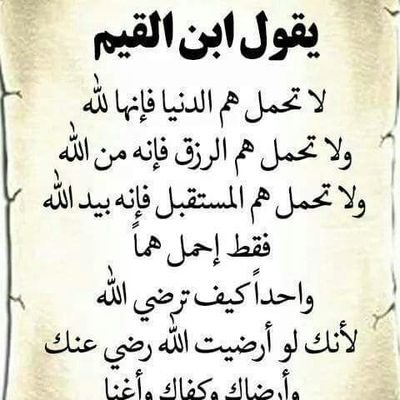 يقول ابن القيم
لا تحمل هم الدنيا فإنها لله
ولا تحمل هم الرزق فإنه من الله
ولا تحمل هم المستقبل فإنه بيد الله
فقط إحمل هماً
واحداً كيف ترضي الله
لأنك لو أرضيت الله رضي عنك
وأرضاك وكفاك وأغنا